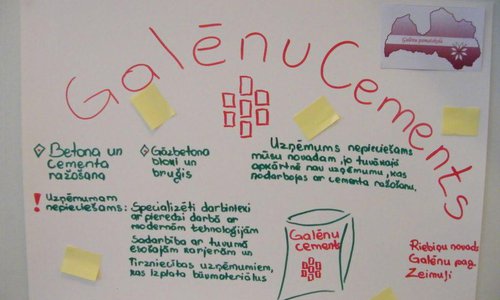 Galēnu Cements
Galēnu pamatskola
Betona un
cementa
ražošana
Gāzbetona
bloki un
bruģis
Uzņēmums nepieciešams
mūsu novadam, jo tuvākajā
apkārtnē nav uzņēmumu, kas
nodarbojas ar cementa ražošanu.
! Uzņēmumam
nepieciešams:
Specializēti darbinieki
ar pieredzi darbā ar
modernām tehnoloģijām
Sadarbība ar tuvumā
esošajām karjerām un
Tirzniecības uzņēmumiem,
kas izplata būvmateriālus
Galēnu
cements
Riebiņu novads
Galēnu pag.
Zeimuļi